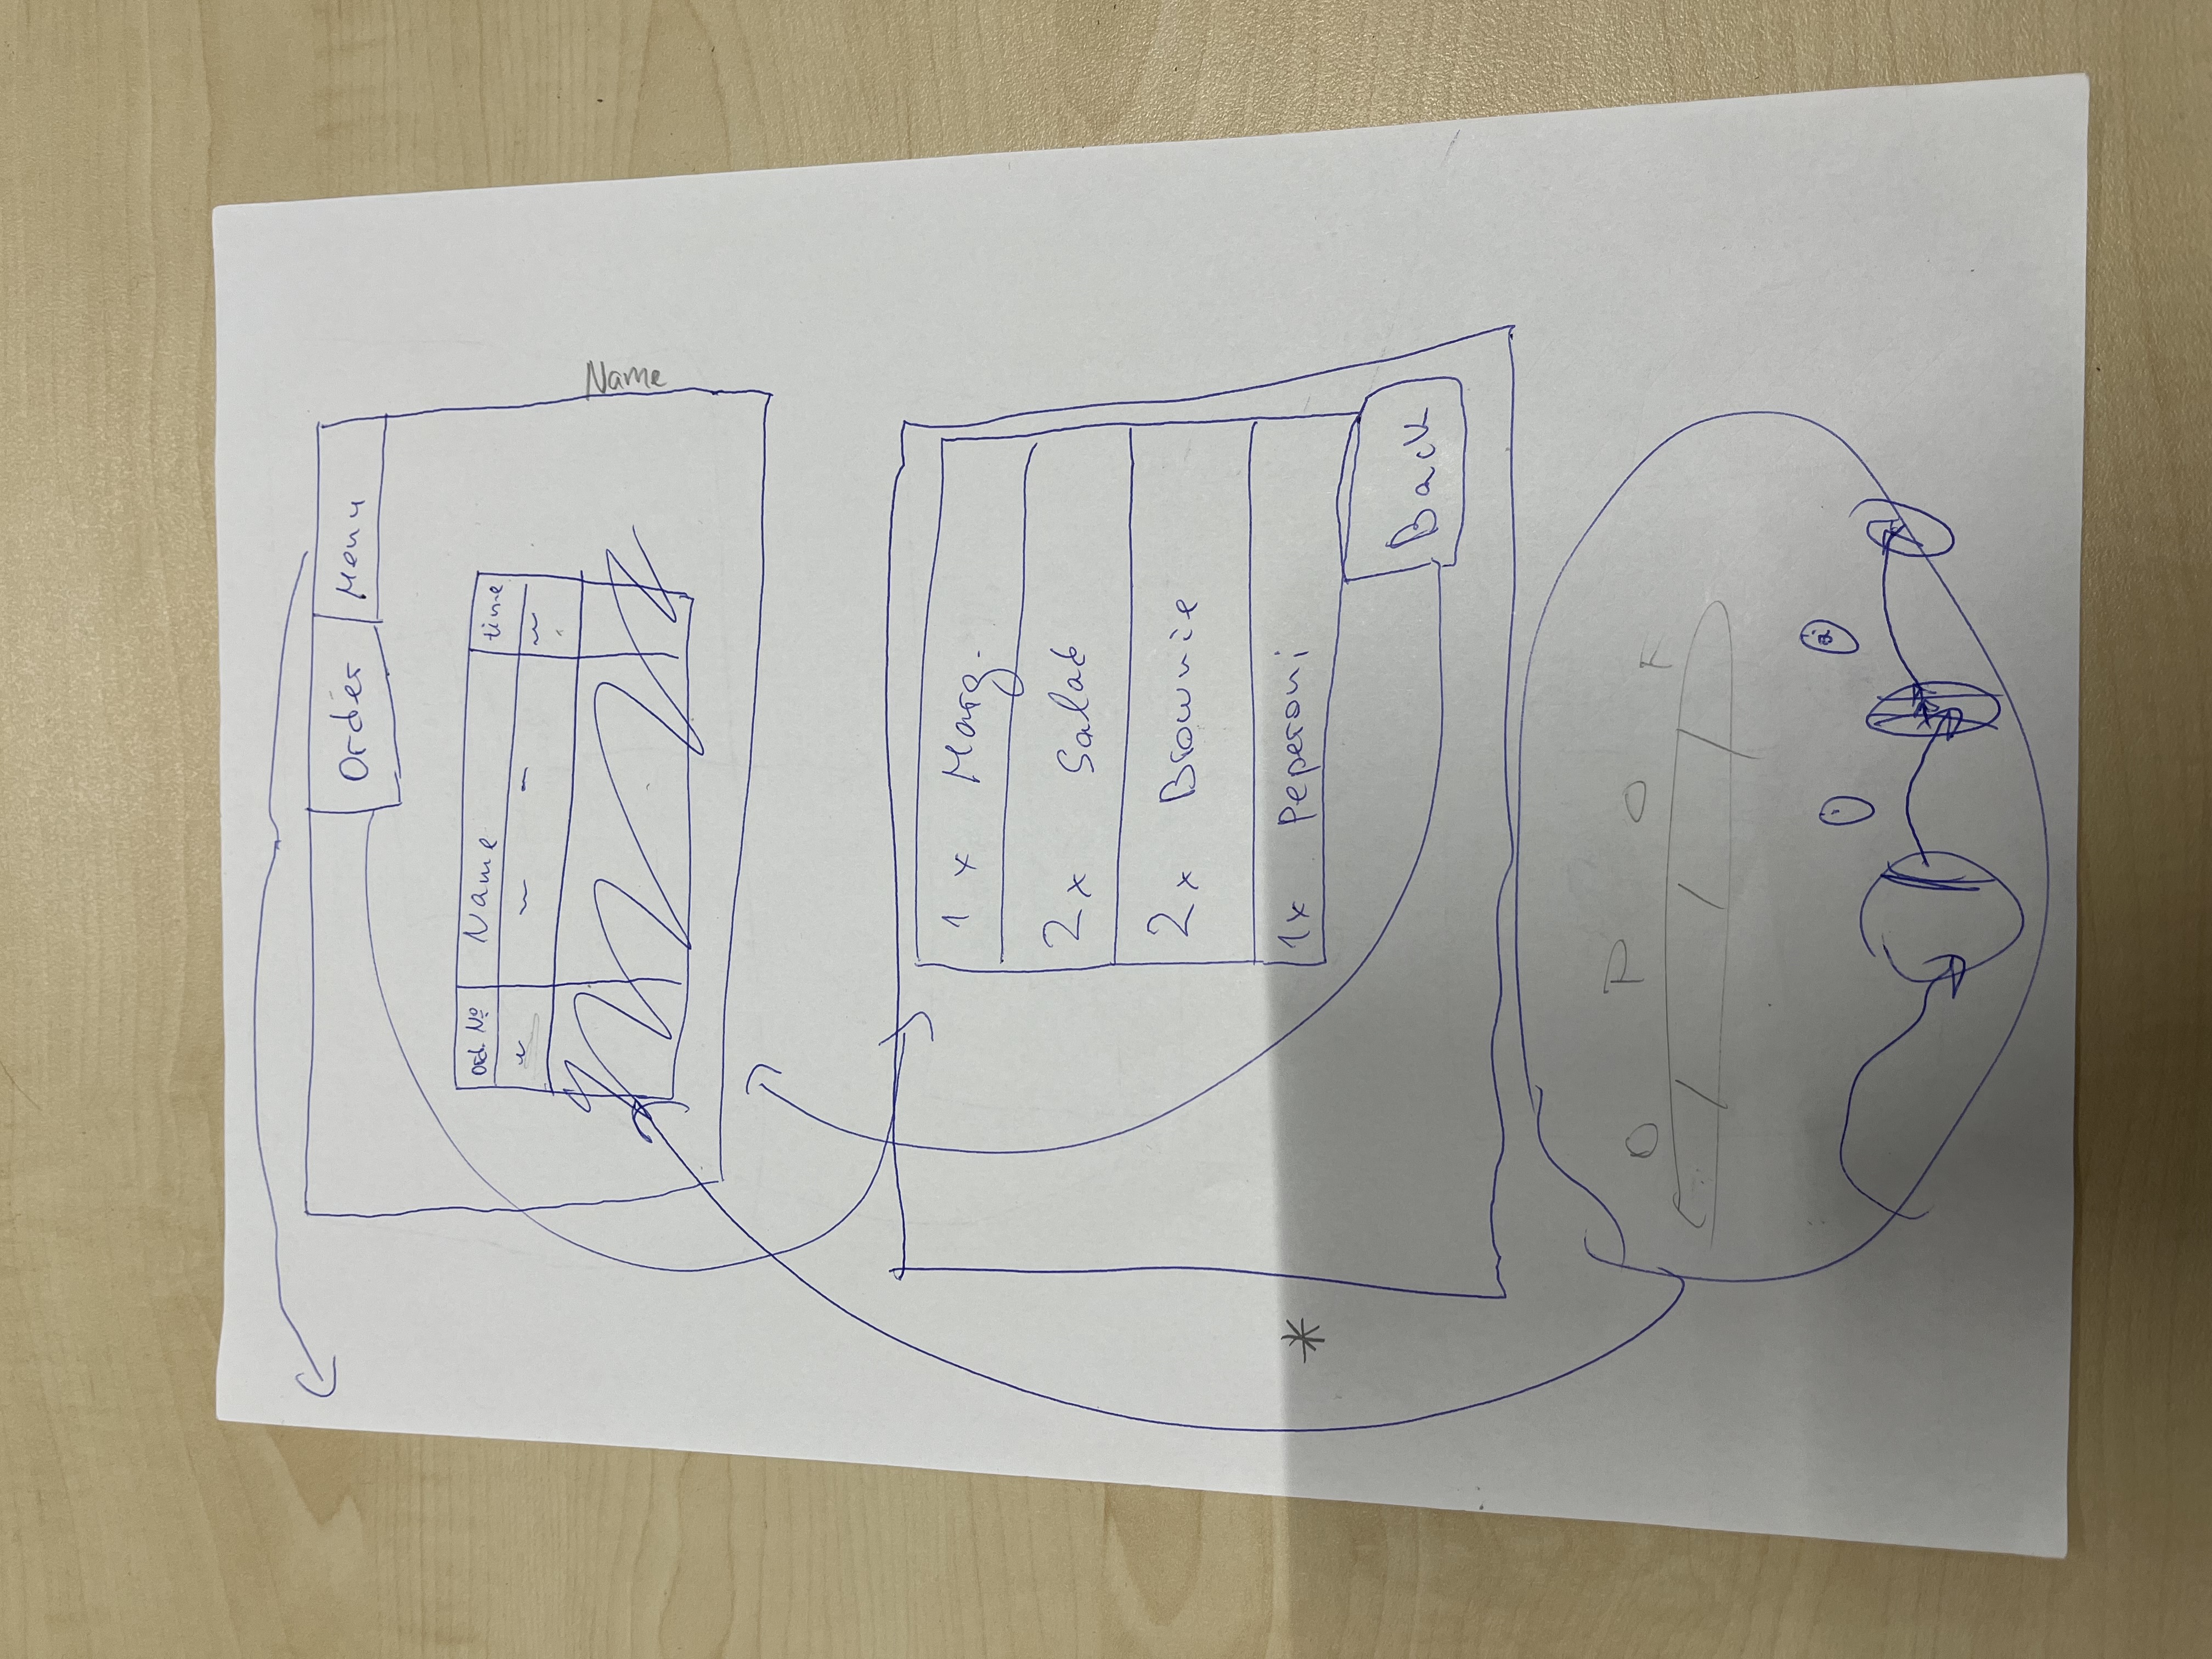 Order Menu
Ord. Nº Name time
Name
1 x Marg.
2 x Salad
2 x Brownie
1x Peperoni
Back
O P O F